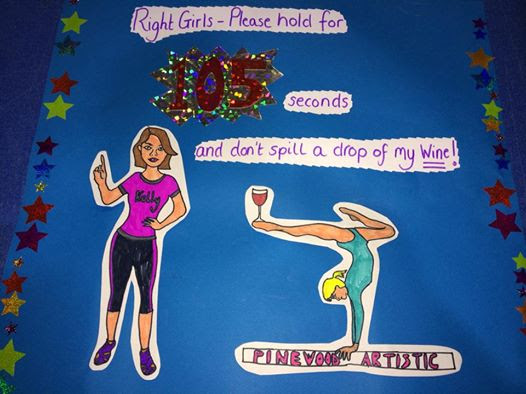 Right Girls - Please hold for
105
seconds
and don't spill a drop of my Wine!
Kelly
PINEWOOD ARTISTIC